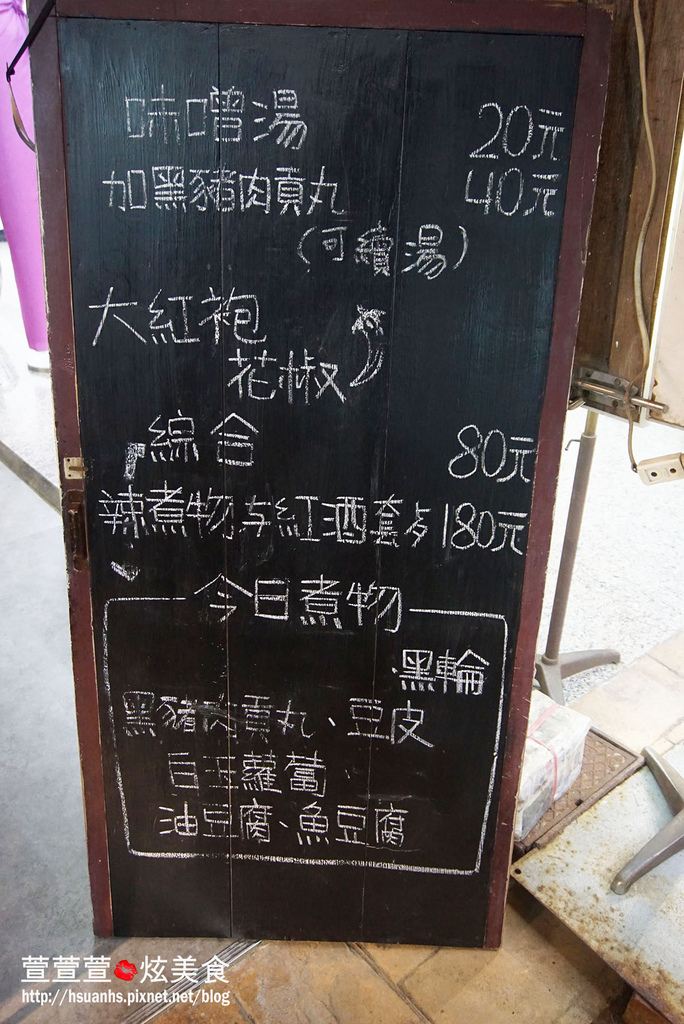 味噌湯 20元
加黑豬肉貢丸 40元
(可續湯)
大紅袍
花椒
綜合 80元
辣煮物与紅酒套歺180元
今日煮物
黑輪
黑豬肉貢丸、豆皮
白玉蘿蔔
油豆腐、魚豆腐
萱萱萱 炫美食
http://hsuanhs.pixnet.net/blog